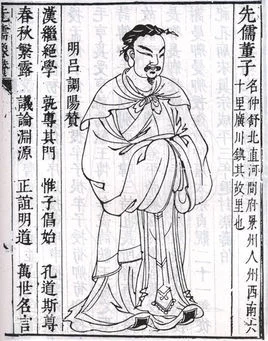 先儒董子
名仲舒北直河間府景州人州西南六
十里廣川鎮其故里也
明呂調陽贊
漢繼絕學 孰尊其門 惟子倡始 孔道斯尊
春秋繁露 議論淵源 正誼明道 萬世名言